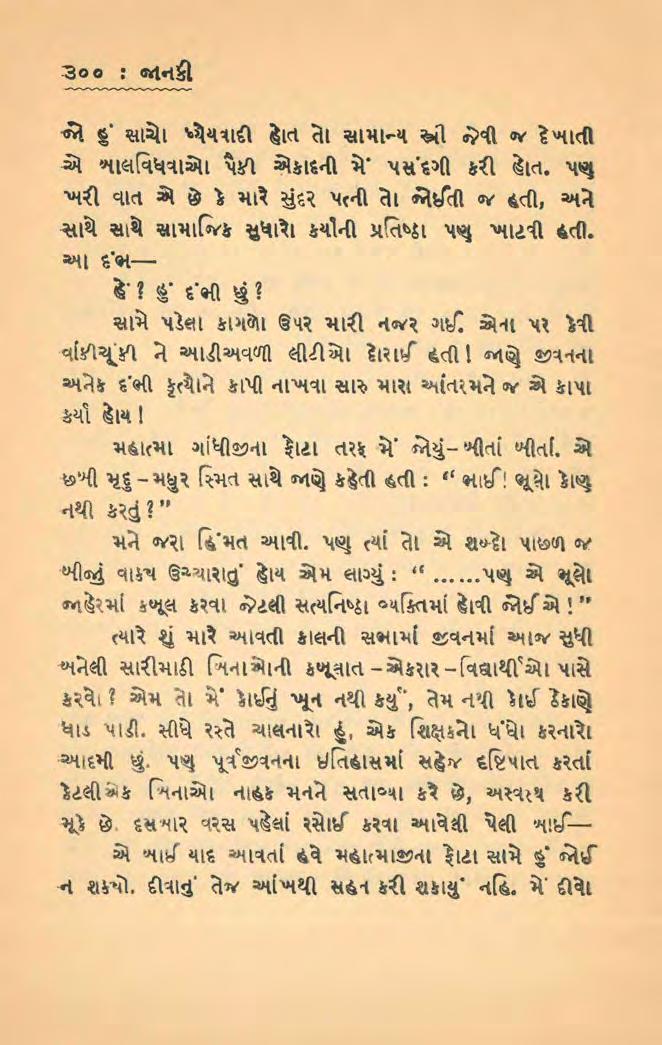 ૩૦૦ : જાનકી
જો હું સાચો ધ્યેયવાદી હોત તો સામાન્ય સ્ત્રી જેવી જ દેખાતી
એ બાલવિધવાઓ પૈકી એકાદની મેં પસંદગી કરી હોત. પણ
ખરી વાત એ છે કે મારે સુંદર પત્ની તો જોઈતી જ હતી, અને
સાથે સાથે સામાજિક સુધારો કર્યાની પ્રતિષ્ઠા પણ ખાટવી હતી.
આ દંભ—
હેં ? હું દંભી છું ?
સામે પડેલા કાગળો ઉપર મારી નજર ગઈ. એના પર કેવી
વાંકીચૂંકી ને આડીઅવળી લીટીઓ દોરાઈ હતી ! જાણે જીવનના
અનેક દંભી કૃત્યોને કાપી નાખવા સારુ મારા આંતરમને જ એ કાપા
કર્યા હોય !
મહાત્મા ગાંધીજીના ફોટા તરફ મેં જોયું–બીતાં બીતાં. એ
છબી મૃદુ – મધુર સ્મિત સાથે જાણે કહેતી હતી : “ ભાઈ! ભૂલો કોણ
નથી કરતું ? ”
મને જરા હિંમત આવી. પણ ત્યાં તો એ શબ્દો પાછળ જ
બીજું વાક્ય ઉચ્ચારાતું હોય એમ લાગ્યું : “ ......પણ એ ભૂલો
જાહેરમાં કબૂલ કરવા જેટલી સત્યનિષ્ઠા વ્યક્તિમાં હોવી જોઈએ ! ”
ત્યારે શું મારે આવતી કાલની સભામાં જીવનમાં આજ સુધી
બનેલી સારીમાઠી બિનાઓની કબૂલાત – એકરાર – વિદ્યાર્થીઓ પાસે
કરવો ? એમ તો મેં કોઈનું ખૂન નથી કર્યું, તેમ નથી કોઈ ઠેકાણે
ધાડ પાડી. સીધે રસ્તે ચાલનારો હું, એક શિક્ષકનો ધંધો કરનારો
આદમી છું. પણ પૂર્વજીવનના ઇતિહાસમાં સહેજ દૃષ્ટિપાત કરતાં
કેટલીએક બિનાઓ નાહક મનને સતાવ્યા કરે છે, અસ્વસ્થ કરી
મૂકે છે. દસબાર વરસ પહેલાં રસોઈ કરવા આવેલી પેલી બાઈ—
એ બાઈ યાદ આવતાં હવે મહાત્માજીના ફોટા સામે હું જોઈ
ન શક્યો. દીવાનું તેજ આંખથી સહન કરી શકાયું નહિ. મેં દીવો